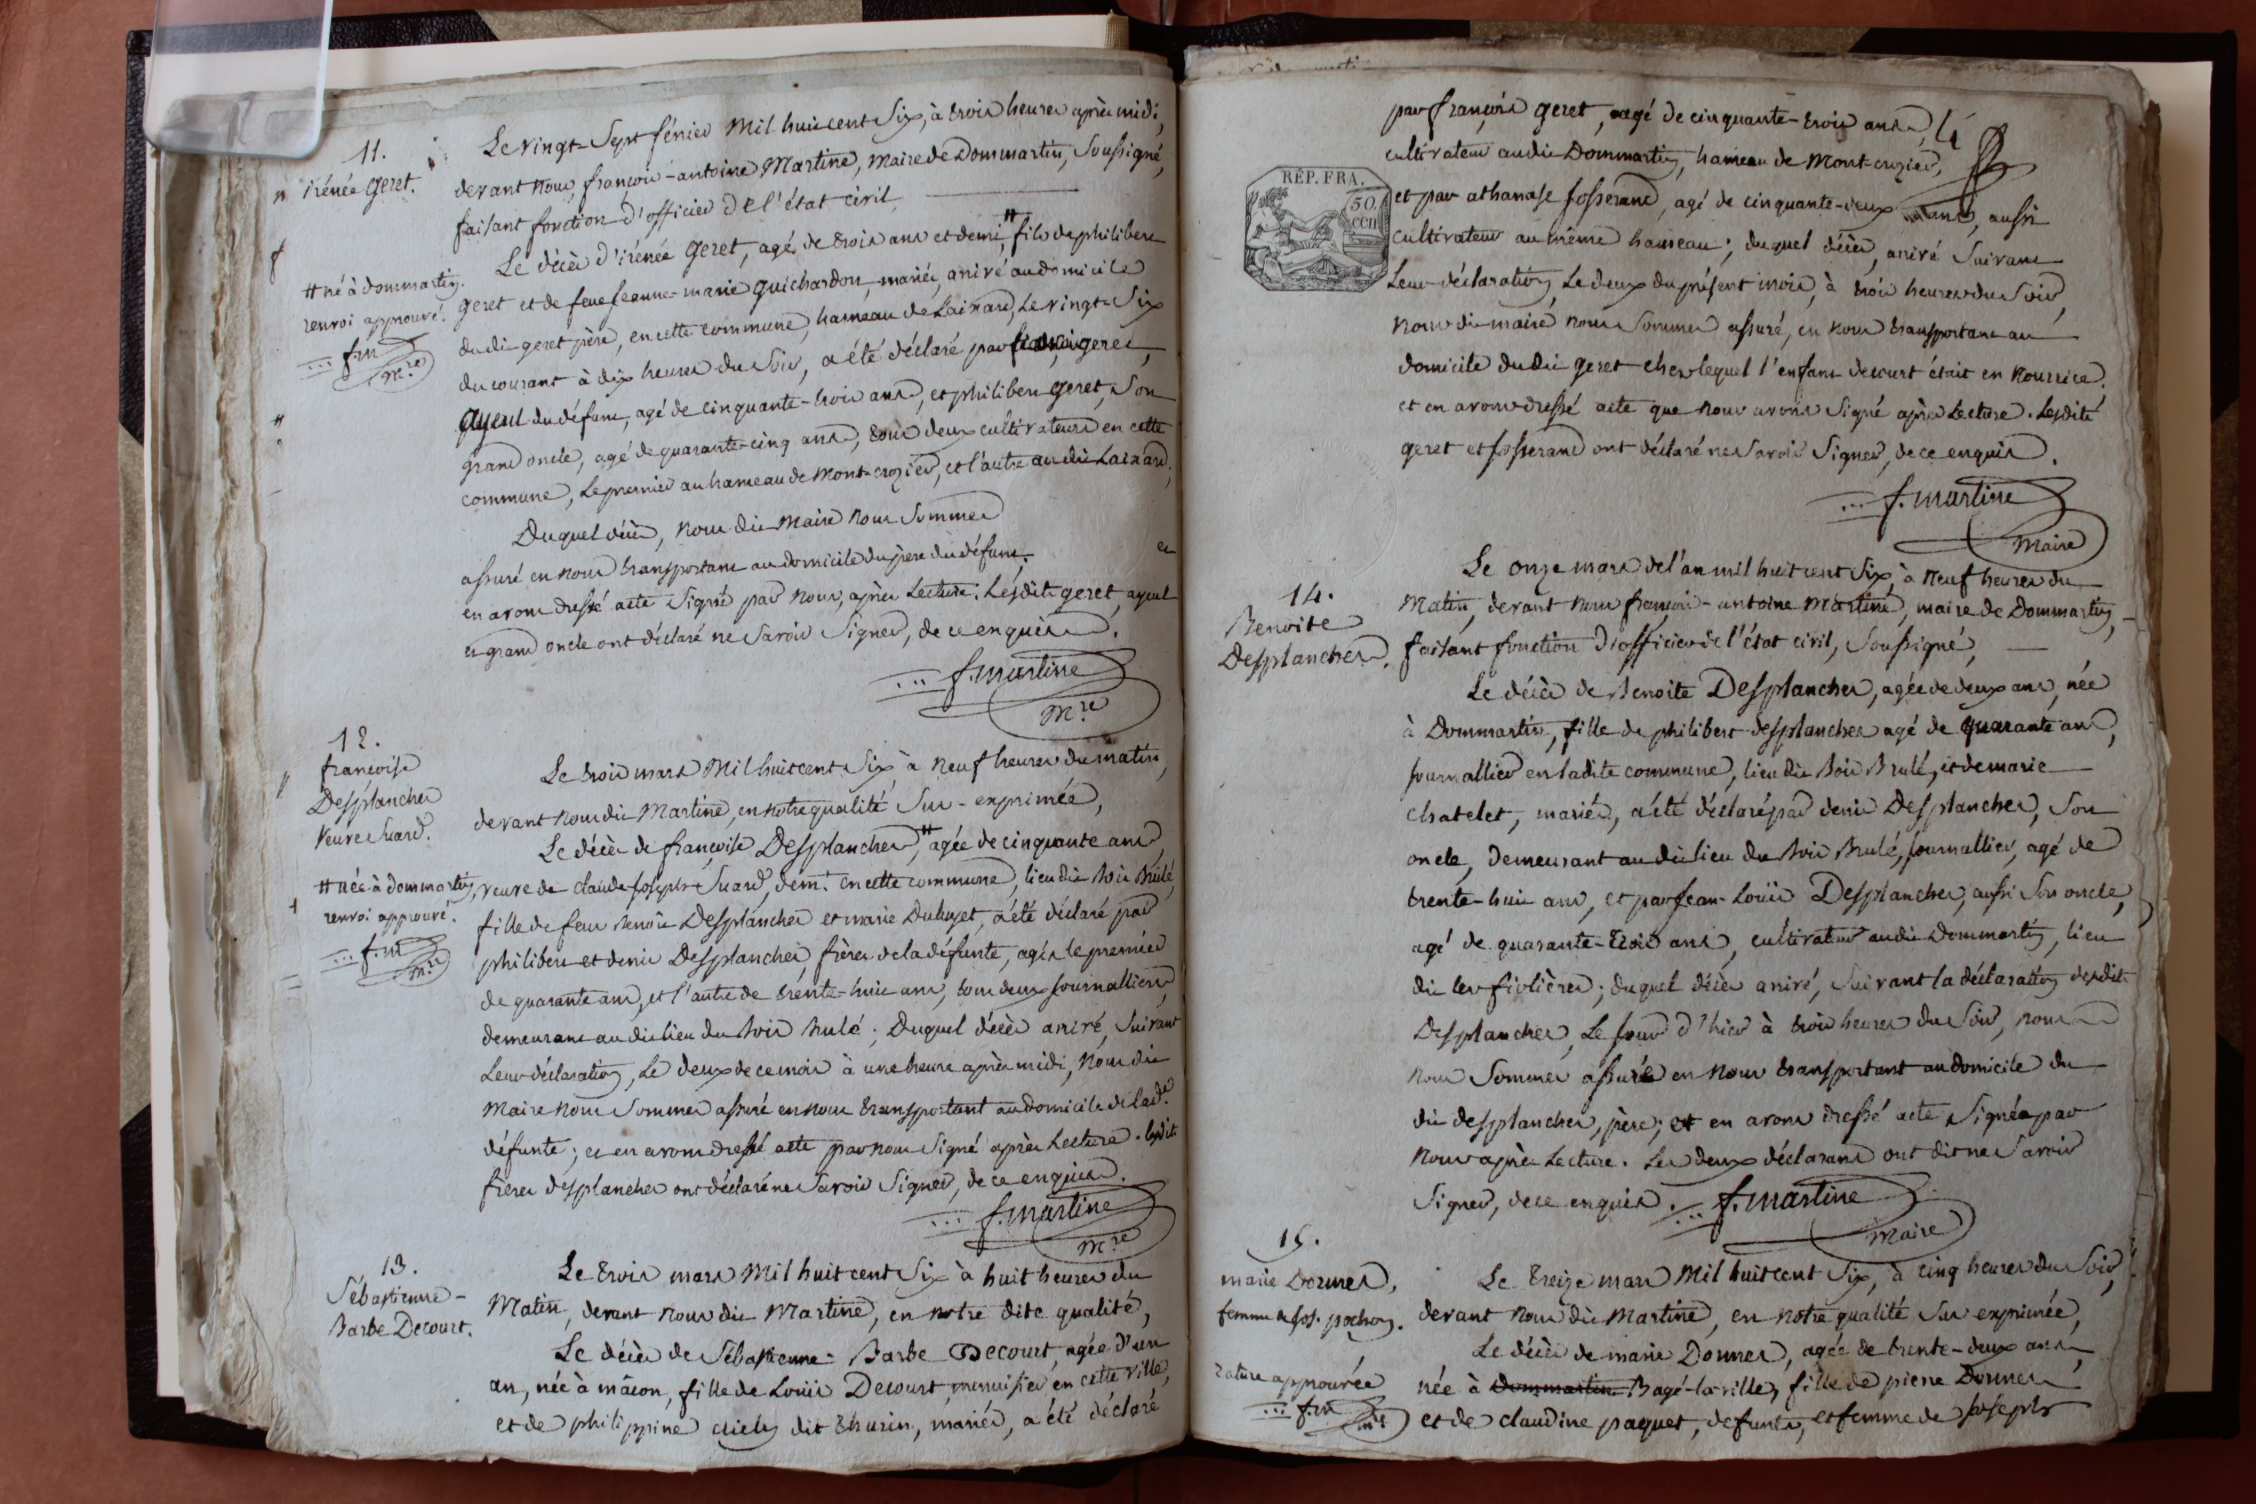 11.
irénée geret.
Le vingt-Sept février Mil huit cent Six, à trois heures après midi,
devant nous, françois-antoine Martine, Maire de Dommartin, Soussigné,
faisant fonction d'officier de l'état civil,
Le décès d'irénée geret, agé de trois ans et demi, # fils de philibert
# né à dommartin.
renvoi approuvé.
f. m
m.re
geret et de feue jeanne-marie guichardon, mariés, arrivé au domicile
dudit geret père, en cette commune, hameau de Laizard, Le vingt-Six
du courant à dix heures du Soir, a été déclaré par françois geret,
ayeul du défunt, agé de cinquante-trois ans, et philibert geret, Son
grand oncle, agé de quarante-cinq ans, tous deux cultivateurs en cette
commune, Le premier au hameau de Mont-crozier, et l'autre audit Laizard.
Duquel décès, nous dit Maire nous Sommes
assuré en nous transportant au domicile du père du défunt. et
en avons dressé acte Signé par nous, après Lecture. Lesdits geret, ayeul
et grand oncle ont déclaré ne Savoir Signer, de ce enquis.
f. martine
M.re
12.
françoise
Desplanches
veuve Suard.
Le trois mars Mil huit cent Six à neuf heures du matin,
devant nous dit Martine, en notre qualité Sus-exprimée,
Le décès de françoise Desplanches, # agée de cinquante ans,
# née à dommartin,
renvoi approuvé.
f. m
m.re
veuve de claude joseph Suard, dem.t en cette commune, lieu dit Bois Brulé,
fille de feu Benoît Desplanches et marie Dubuget, a été déclaré par
philibert et denis Desplanches frères de la défunte, agés le premier
de quarante ans, et l'autre de trente-huit ans, tous deux journalliers,
demeurans audit lieu du Bois Brulé; Duquel décès arrivé, Suivant
Leur déclaration, Le deux de ce mois à une heure après midi, Nous dit
Maire nous Sommes assuré en nous transportant au domicile de Lad.e
défunte; et en avons dressé acte par nous Signé après Lecture. lesdits
frères desplanches ont déclaré ne Savoir Signer, de ce enquis.
f. martine
M.re
13.
Sébastienne-
Barbe Decourt.
Le trois mars Mil huit cent Six à huit heures du
Matin, devant nous dit Martine, en notre dite qualité,
Le décès de Sébastienne-Barbe Decourt, agée d'un
an, née à mâcon, fille de Louis Decourt, menuisier en cette ville,
et de philippine dit thurin, mariés, a été déclaré
par françois geret, agé de cinquante-trois ans,
cultivateur audit Dommartin, hameau de Mont-crozier,
RÉP. FRA.
50.
CCH
et par athanase josserand, agé de cinquante-deux ans, aussi
cultivateur au même hameau; duquel décès, arrivé Suivant
Leur déclaration, Le deux du présent mois, à trois heures du Soir,
nous dit maire nous Sommes assuré, en nous transportant au
domicile dudit geret chez lequel l'enfant decourt était en nourrice.
et en avons dressé acte que nous avons Signé après Lecture. Lesdits
geret et josserand ont déclaré ne Savoir Signer, de ce enquis.
f. martine
Maire
14.
Benoite
Desplanches.
Le onze mars de l'an mil huit cent Six, à neuf heures du
Matin, devant nous françois-antoine Martine, maire de Dommartin,
faisant fonction d'officier de l'état civil, Soussigné,
Le décès de Benoite Desplanches, agée de deux ans, née
à Dommartin, fille de philibert desplanches agé de quarante ans,
journallier en ladite commune, lieu dit Bois Brulé, et de marie
chatelet, mariés, a été déclaré par denis Desplanches, Son
oncle, Demeurant audit lieu du Bois Brulé, journallier, agé de
trente-huit ans, et par jean-Louis Desplanches, aussi Son oncle,
agé de quarante-trois ans, cultivateur audit Dommartin, lieu
dit les fiolières; duquel décès arrivé, Suivant la déclaration desdits
Desplanches, Le jour d'hier à trois heures du Soir, nous
nous Sommes assuré en nous transportant au domicile du
dit desplanches, père; et en avons dressé acte Signé par
nous après Lecture. Les deux déclarans ont dit ne Savoir
Signer, de ce enquis.
f. martine
Maire
15.
marie Donnes,
femme de jos. pochon.
Le treize mars Mil huit cent Six, à cinq heures du Soir,
devant nous dit Martine, en notre qualité Sus exprimée,
Le décès de marie Donnes, agée de trente-deux ans,
rature approuvée
f. m
m.re
née à dommartin Bagé-la-ville, fille de pierre Donnes
et de claudine paquet, defunts, et femme de joseph